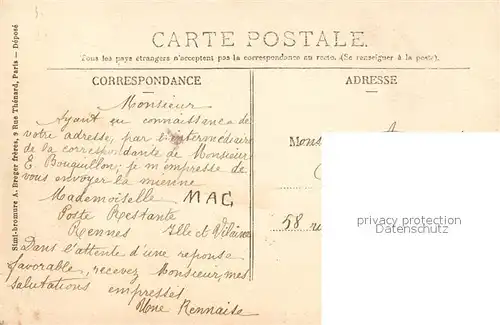 CARTE POSTALE.
Tous les pays étrangers n'acceptent pas la correspondance au recto. (Se renseigner à la poste).
CORRESPONDANCE
Monsieur
Ayant eu connaissance de
votre adresse, par l'intermédiaire
de la correspondante de Monsieur
E. Bouquillon, je m'empresse de
vous envoyer la mienne
Mademoiselle MAG
Poste Restante
Rennes Ille et Vilaine
Dans l'attente d'une reponse
favorable, recevez Monsieur, mes
salutations empressés
Une Rennaise
ADRESSE
Mons
58
privacy protection
datenschutz
Simil-bromure A. Breger frères, 9 Rue Thénard, Paris — Déposé